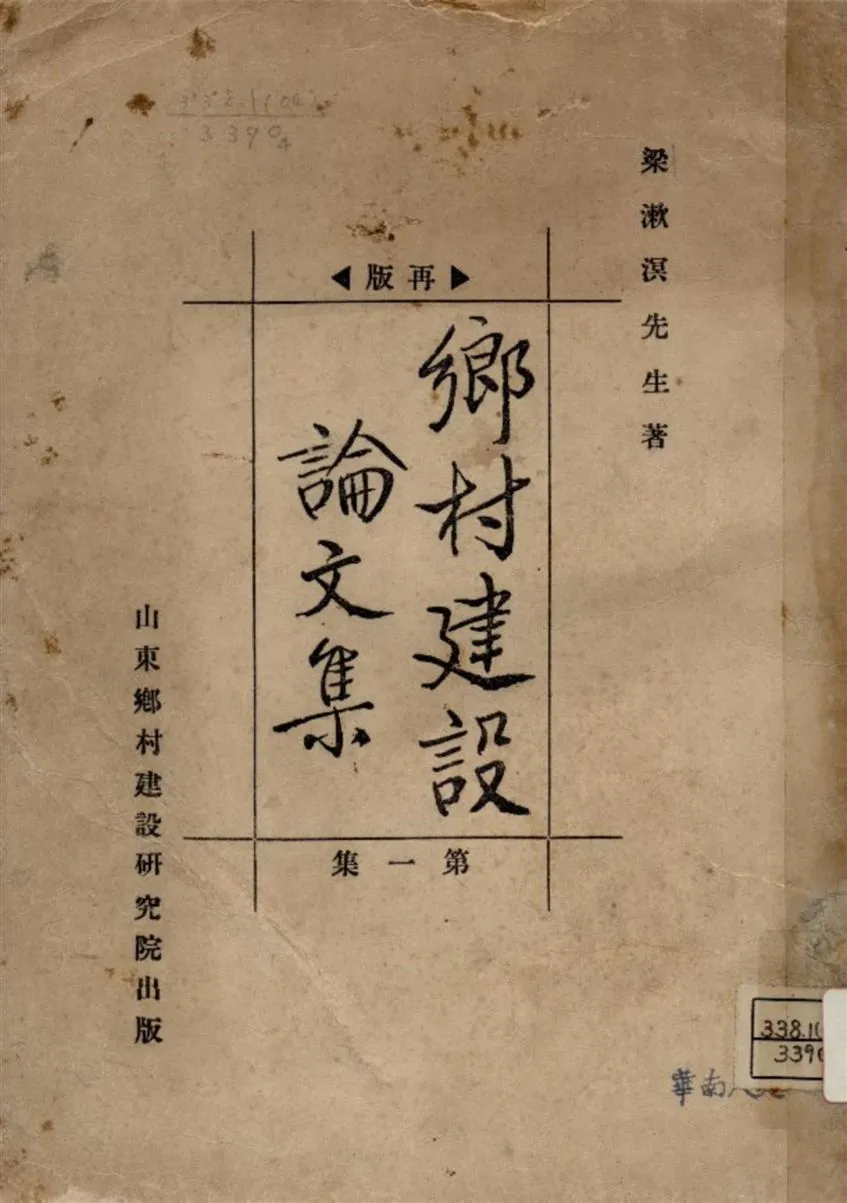 338.1(04)
3390₄
梁漱溟先生著
再版
鄉村建設
論文集
第一集
山東鄉村建設研究院出版
338.1
3390
華南